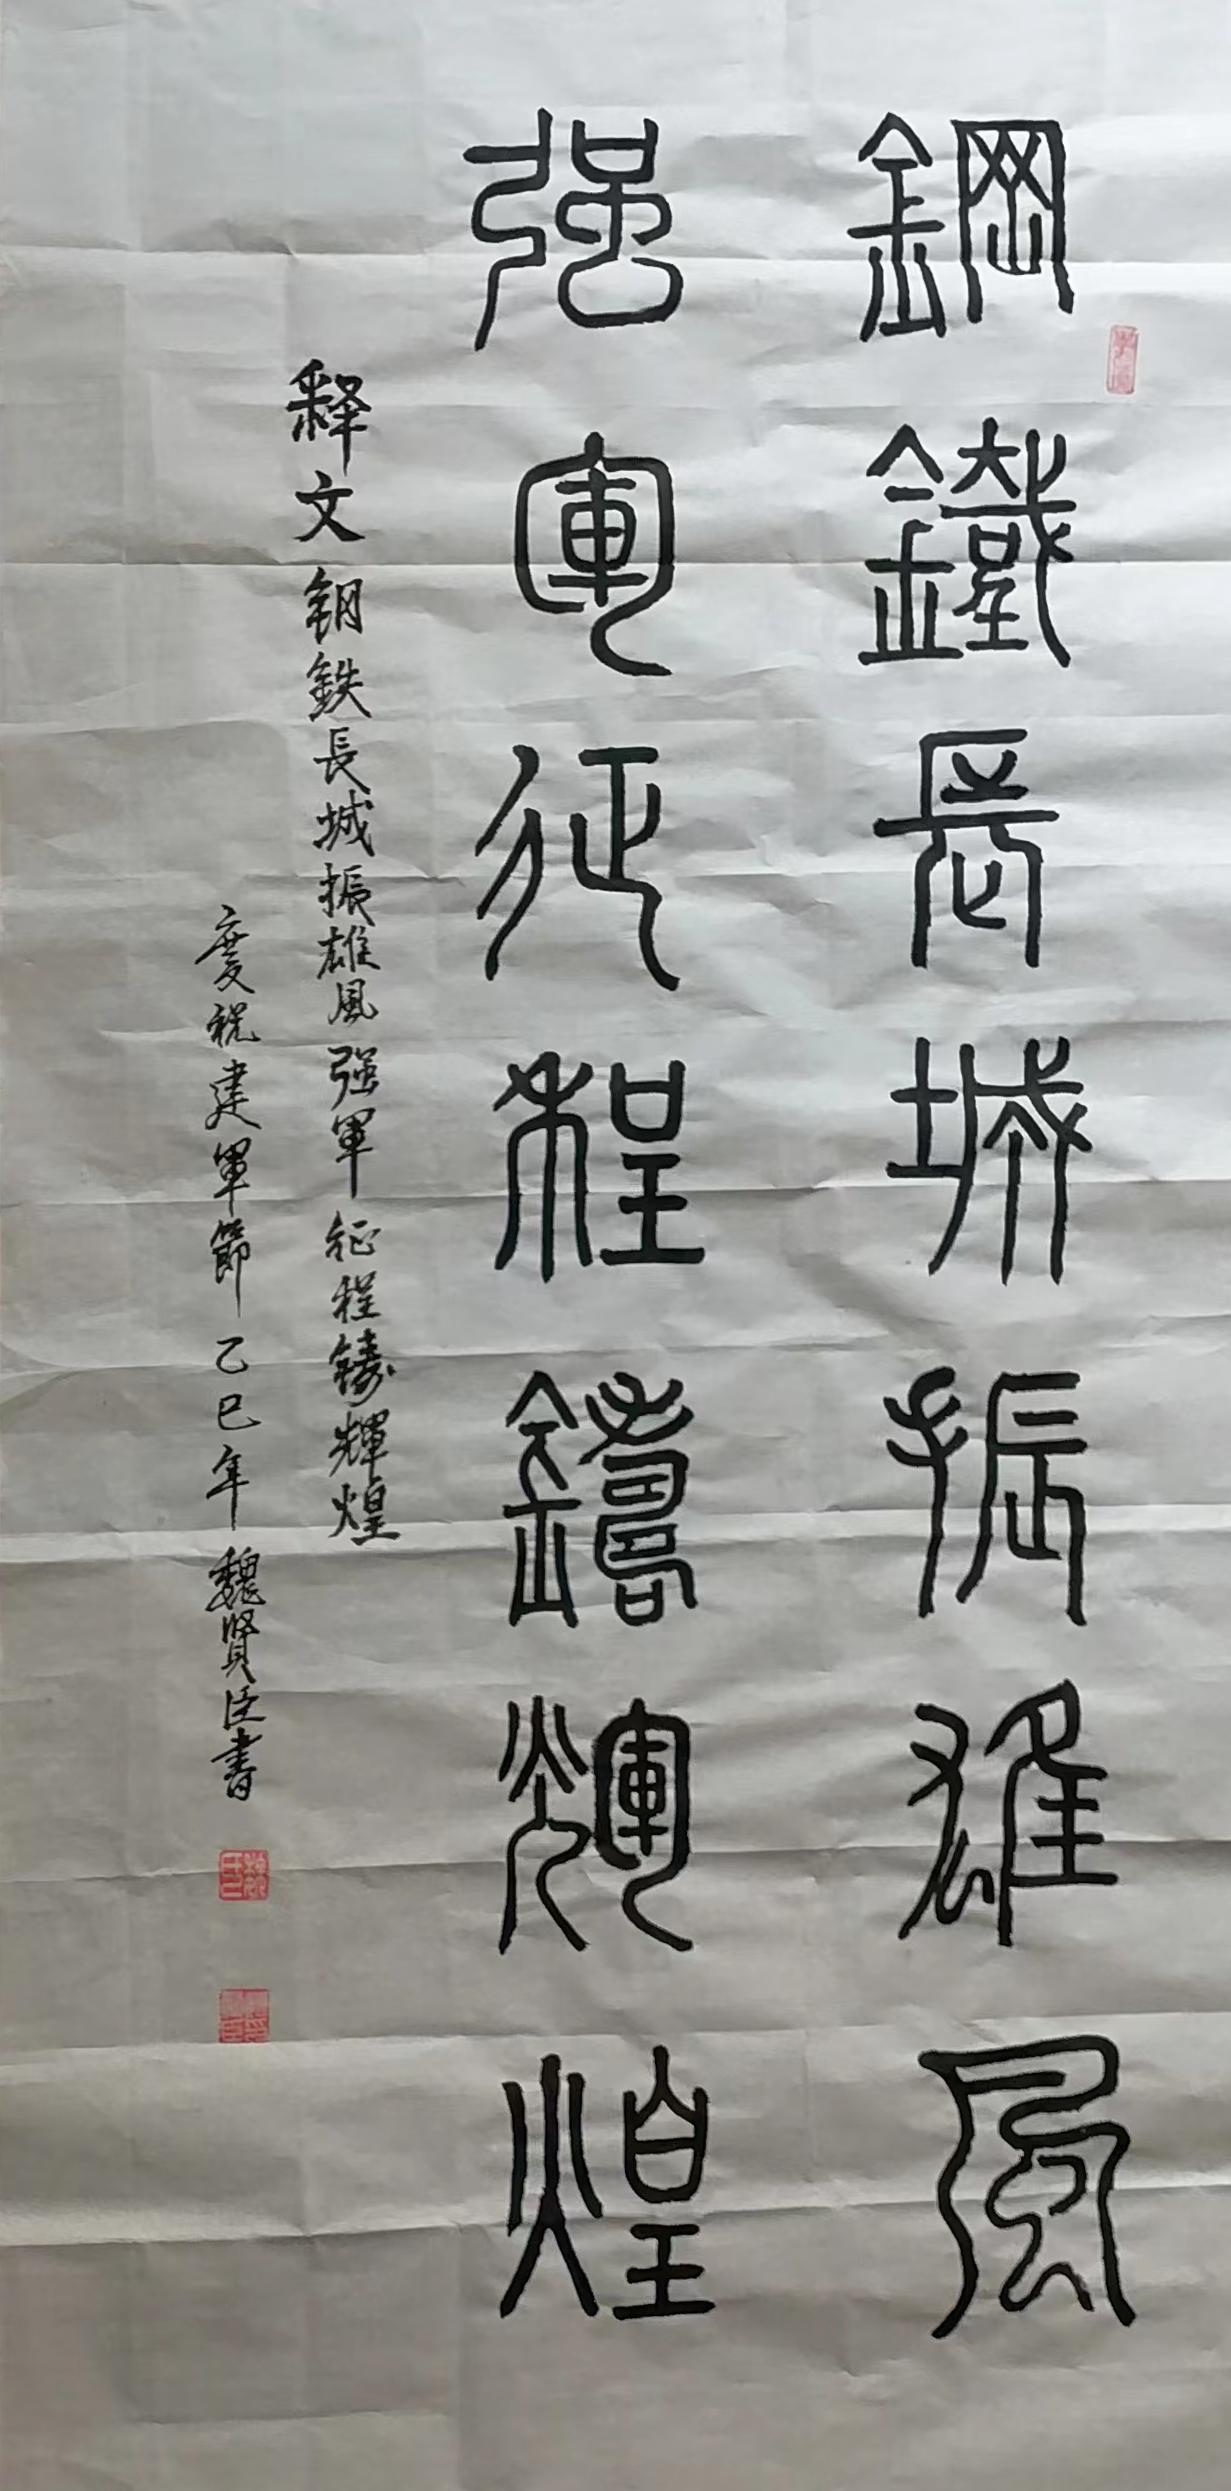 鋼鐵長城振雄風
强軍征程鑄輝煌
释文 钢鉄長城振雄風 强軍征程鑄輝煌
慶祝建軍節乙巳年魏賢臣書